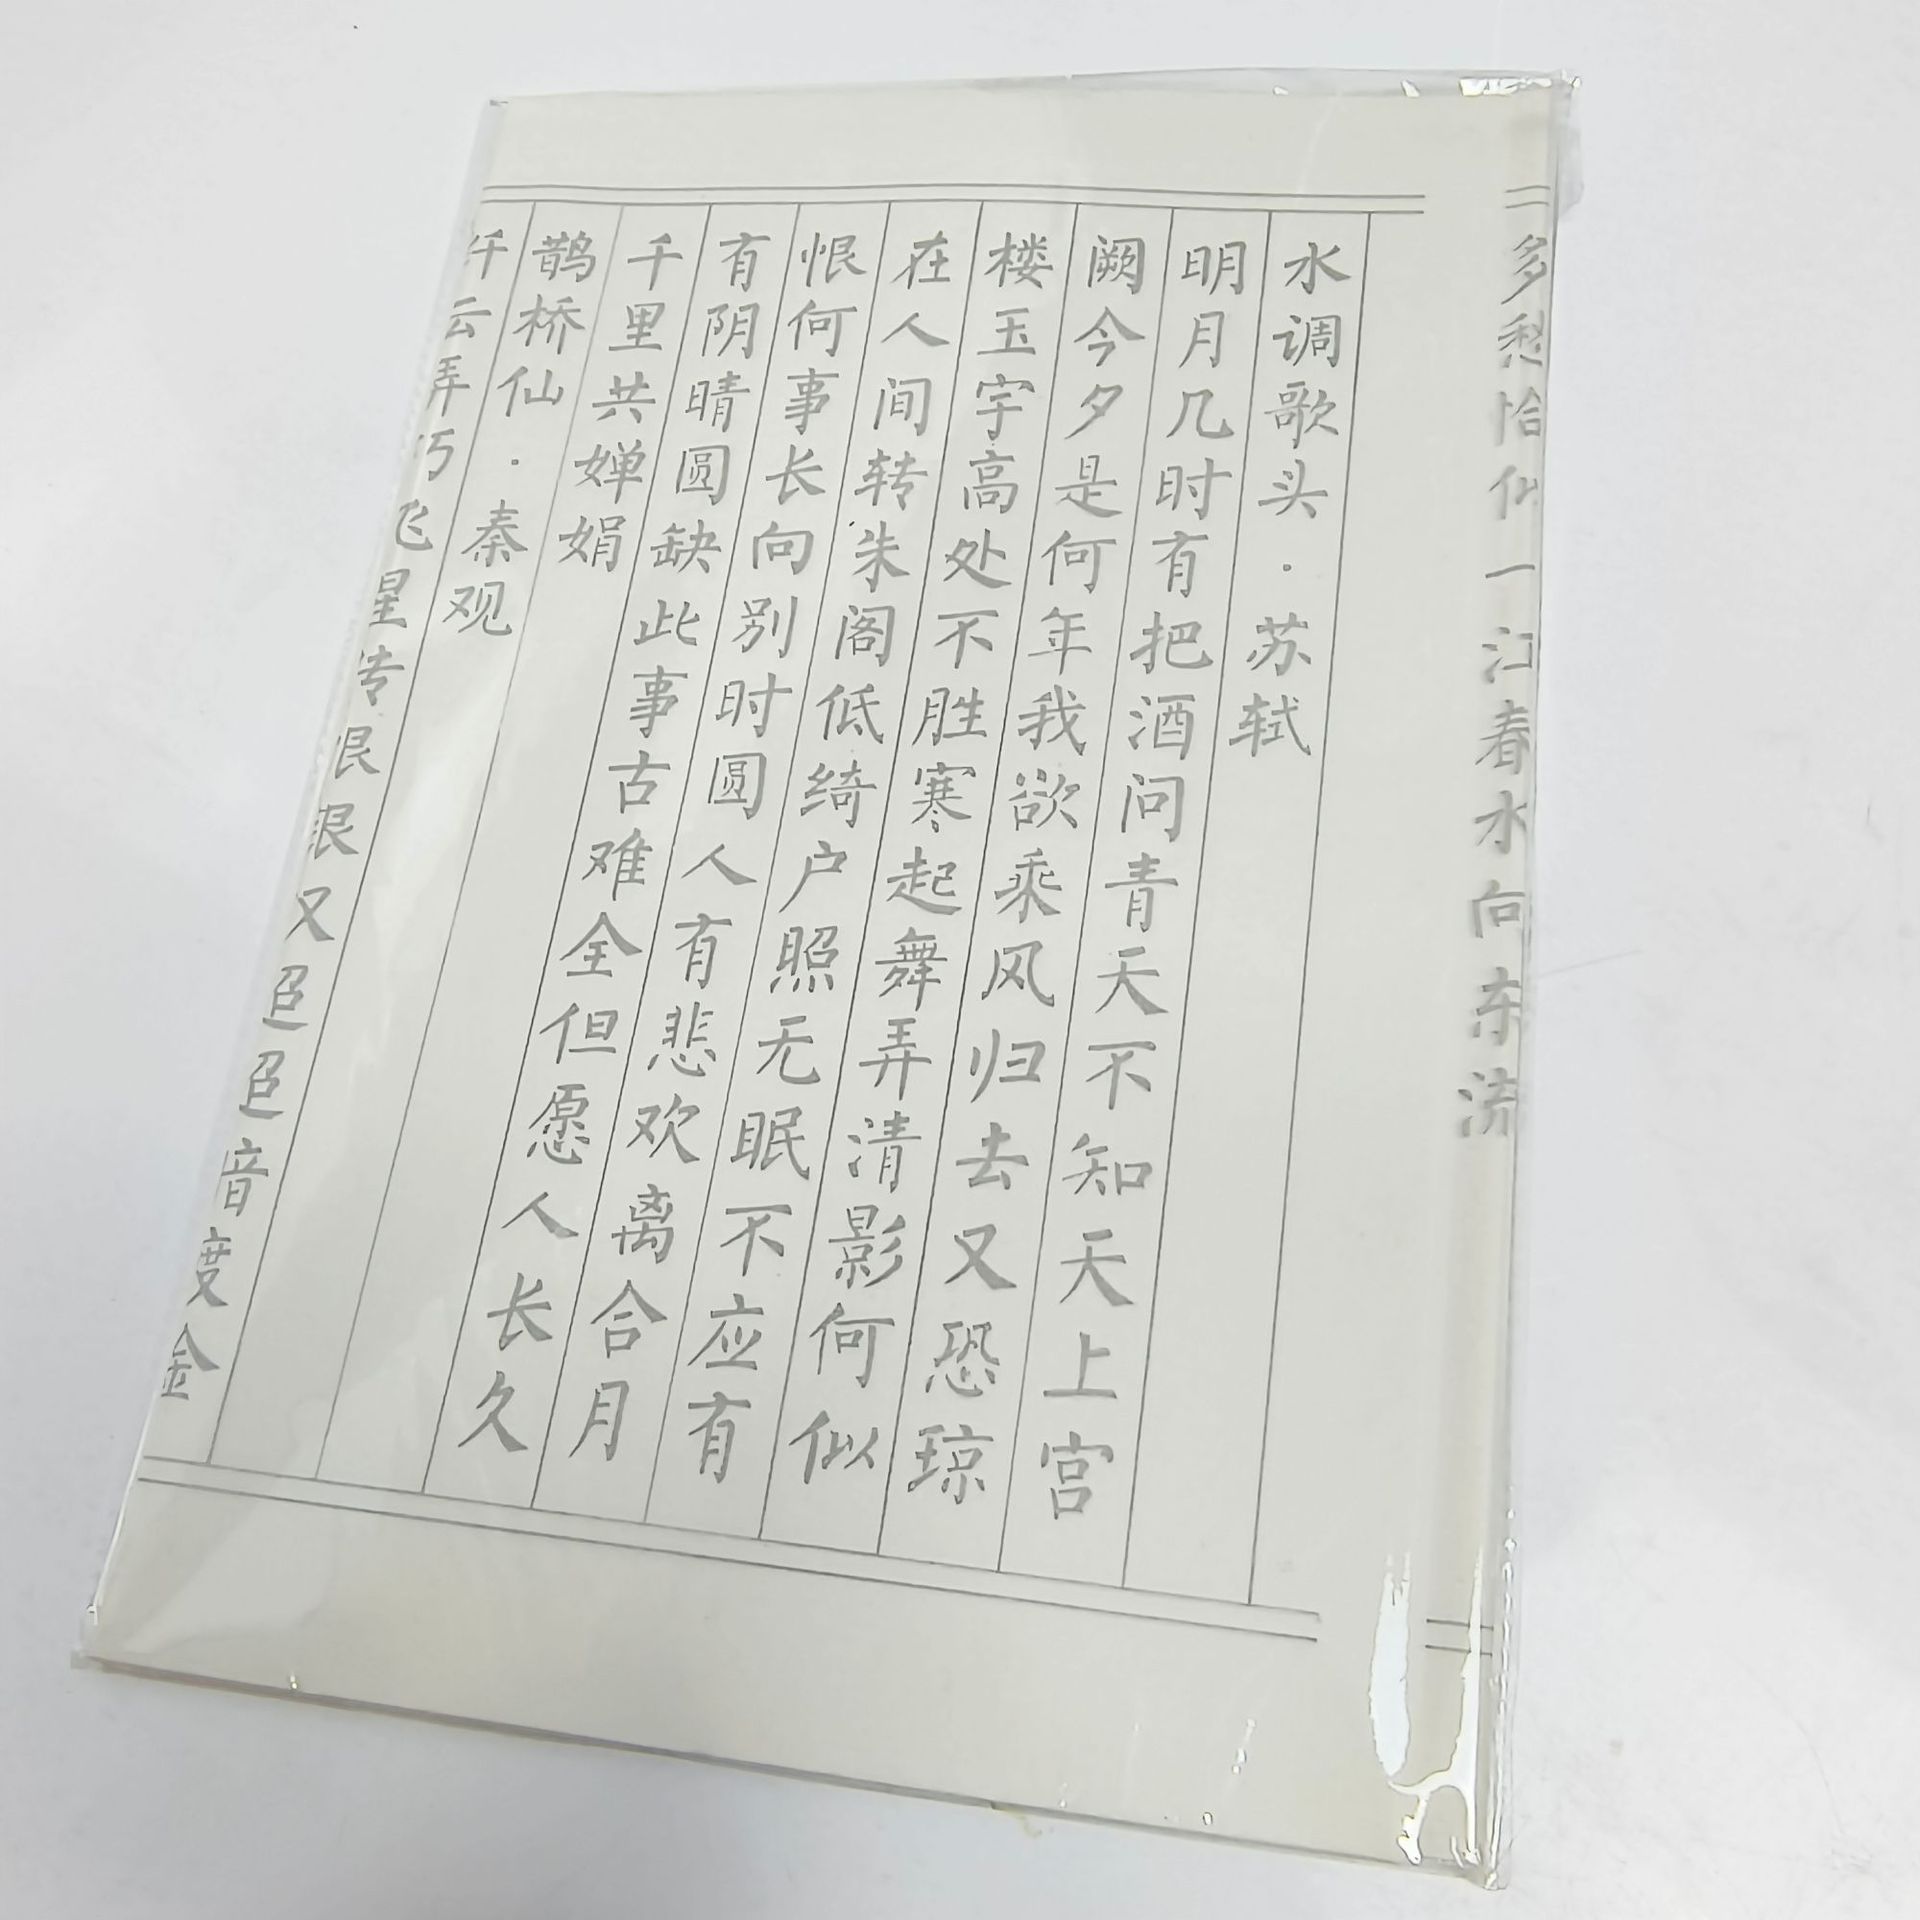 多愁恰似一江春水向东流
水调歌头·苏轼
明月几时有把酒问青天不知天上宫
阙今夕是何年我欲乘风归去又恐琼
楼玉宇高处不胜寒起舞弄清影何似
在人间转朱阁低绮户照无眠不应有
恨何事长向别时圆人有悲欢离合月
有阴晴圆缺此事古难全但愿人长久
千里共婵娟
鹊桥仙·秦观
纤云弄巧飞星传恨银汉迢迢暗度金